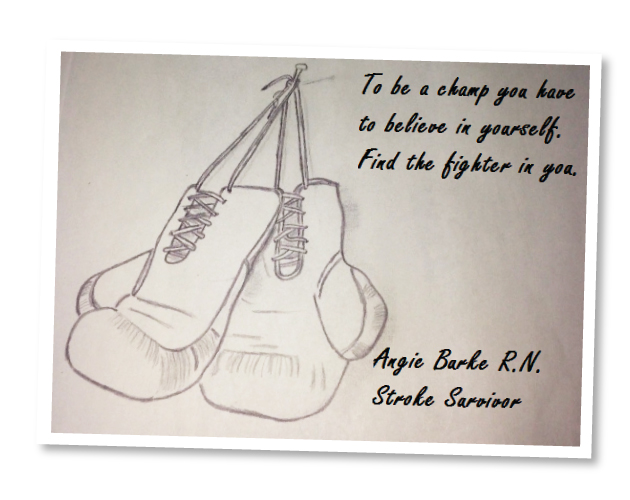 To be a champ you have
to believe in yourself.
Find the fighter in you.
Angie Burke R.N.
Stroke Survivor